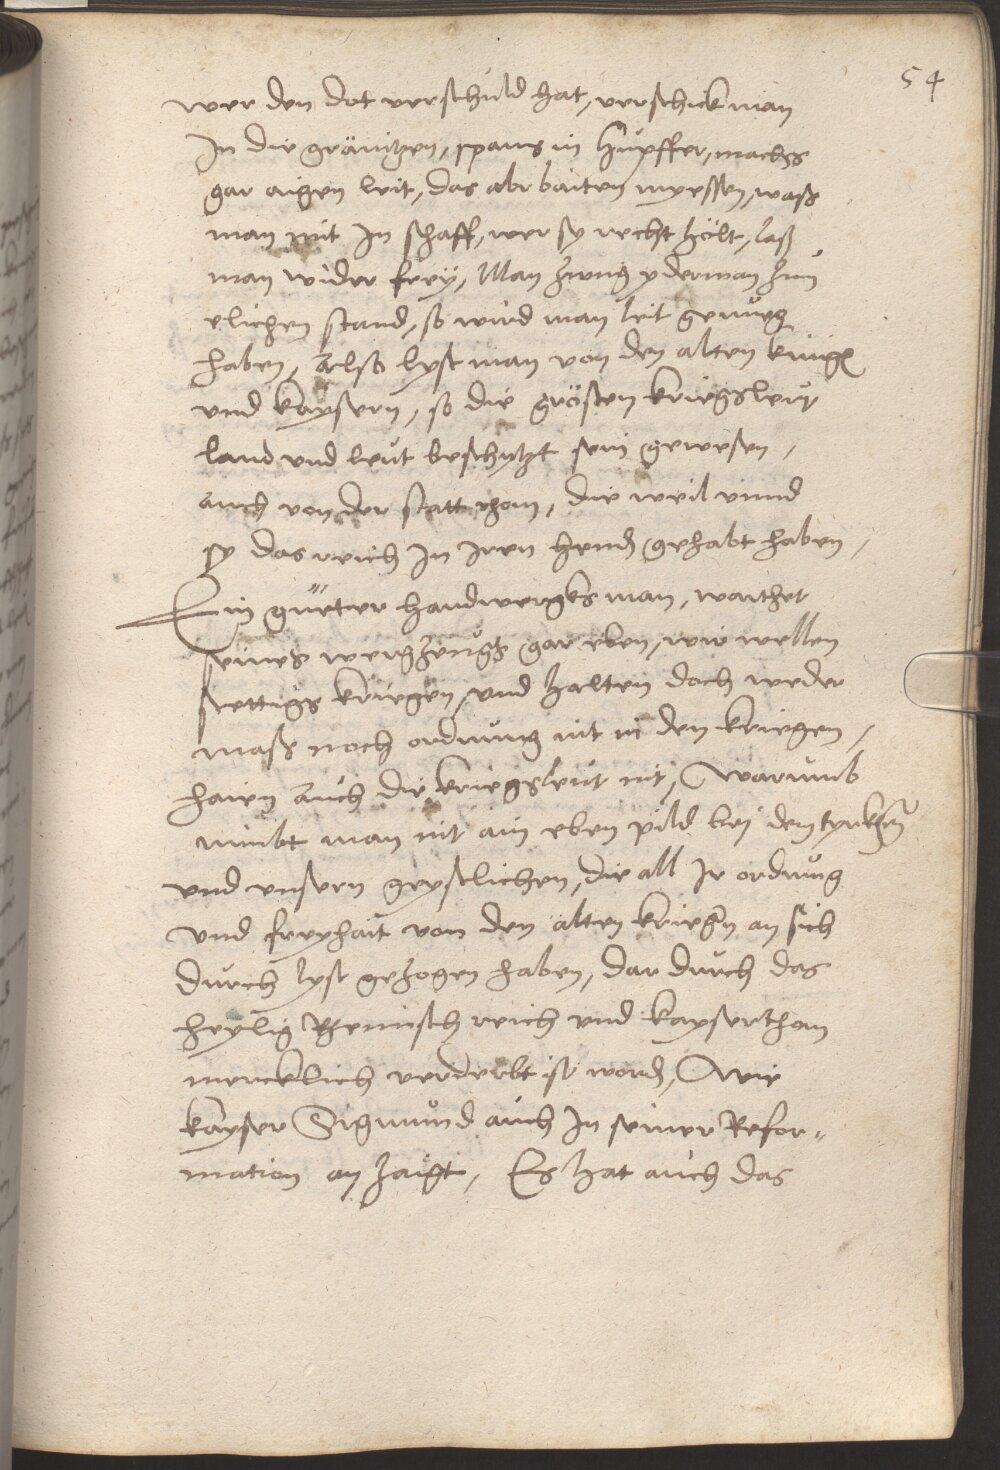 54
wer den dot verschuld hat, verschick man
In die gränitzen, spans in hupffer, machss
gar aigen leit, das abr baiten myessen, wass
man mit In schaff, wer sy recht hölt, lass
man wider frey, Man zwing yderman zum
elichen stand, so wird man leit genueg
haben, Also lyst man von den alten kinig
vnd kaysern, so die grösten kriegsleut
land vnd leut beschytzt sein gewesen,
auch von der statt rhom, die weil vnnd
sy das reich In Iren hend gehabt haben,
Ein gueter handwergksman, warthet
seines wergzeugs gar eben, wir wellen
stettigs kriegen, vnd halten doch weder
mass noch ordnung nit in den kriegen,
haien auch die kriegsleut nit, Warumb
nimbt man nit ain eben pild bei den tyrckhen
vnd vnsern geystlichen, die all Ir ordnung
vnd freyhait von den alten kriegen an sich
durch lyst gezogen haben, dar durch das
heylig Rhemisch reich vnd kayserthom
mercklich verderbt ist word, Wie
kayser Sigmund auch In seiner Refor-
mation an zaigt, Es hat auch das